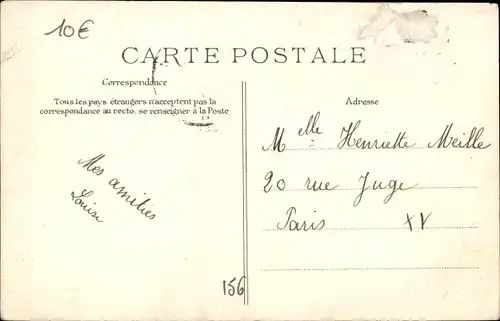 10€
CARTE POSTALE
Correspondance
Tous les pays étrangers n'acceptent pas la
correspondance au recto, se renseigner à la Poste
Adresse
Mes amitiés
Louise
Melle Henriette Meille
20 rue Juge
Paris XV
156